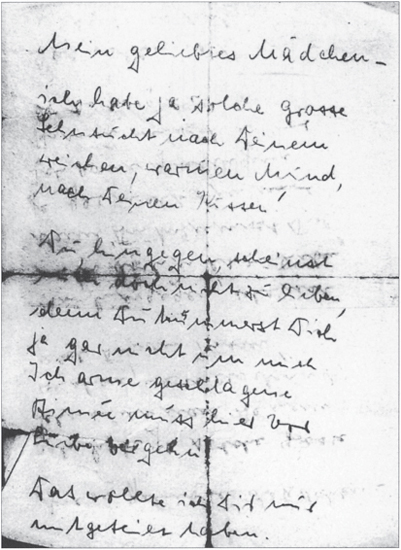 Mein geliebtes Mädchen –
ich habe ja solche grosse
Sehnsucht nach Deinem
weichen, warmen Mund,
nach Deinen Küssen!
Du, hingegen, scheinst
doch nicht zu lieben,
denn Du kümmerst Dich
ja gar nicht um mich
Ich arme geschlagene
Aimée muss hier vor
Liebe vergehn
Das wollte ich Dir nur
mitgeteilt haben.